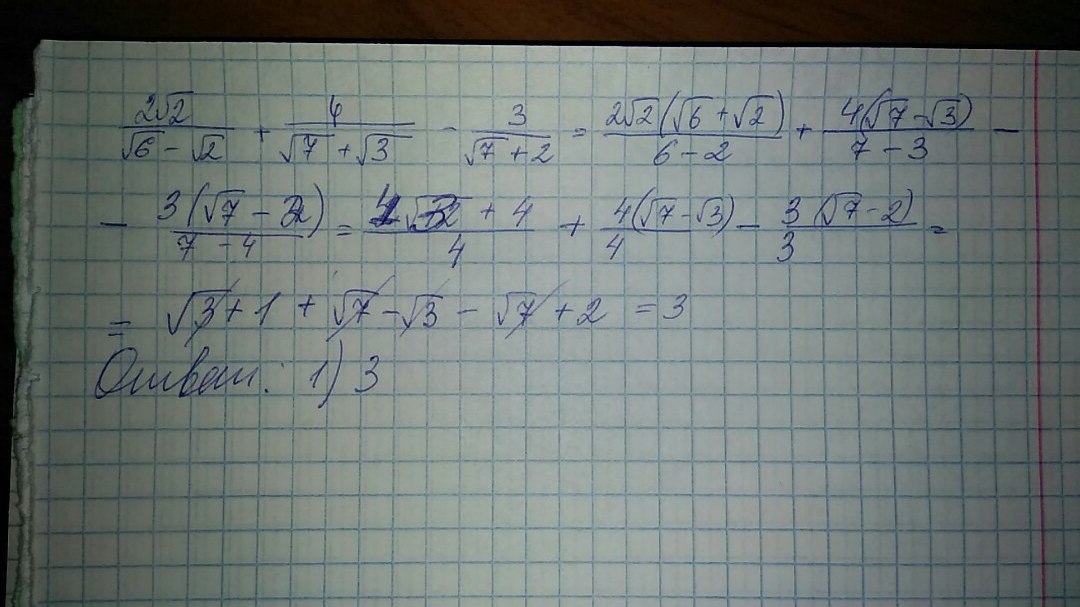 2√2/(√6 − √2) + 4/(√7 + √3) − 3/(√7 + 2) = 2√2(√6 + √2)/(6 − 2) + 4(√7 − √3)/(7 − 3) −
− 3(√7 − 2)/(7 − 4) = (4√3 + 4)/4 + 4(√7 − √3)/4 − 3(√7 − 2)/3 =
= √3 + 1 + √7 − √3 − √7 + 2 = 3
Ответ: 1) 3